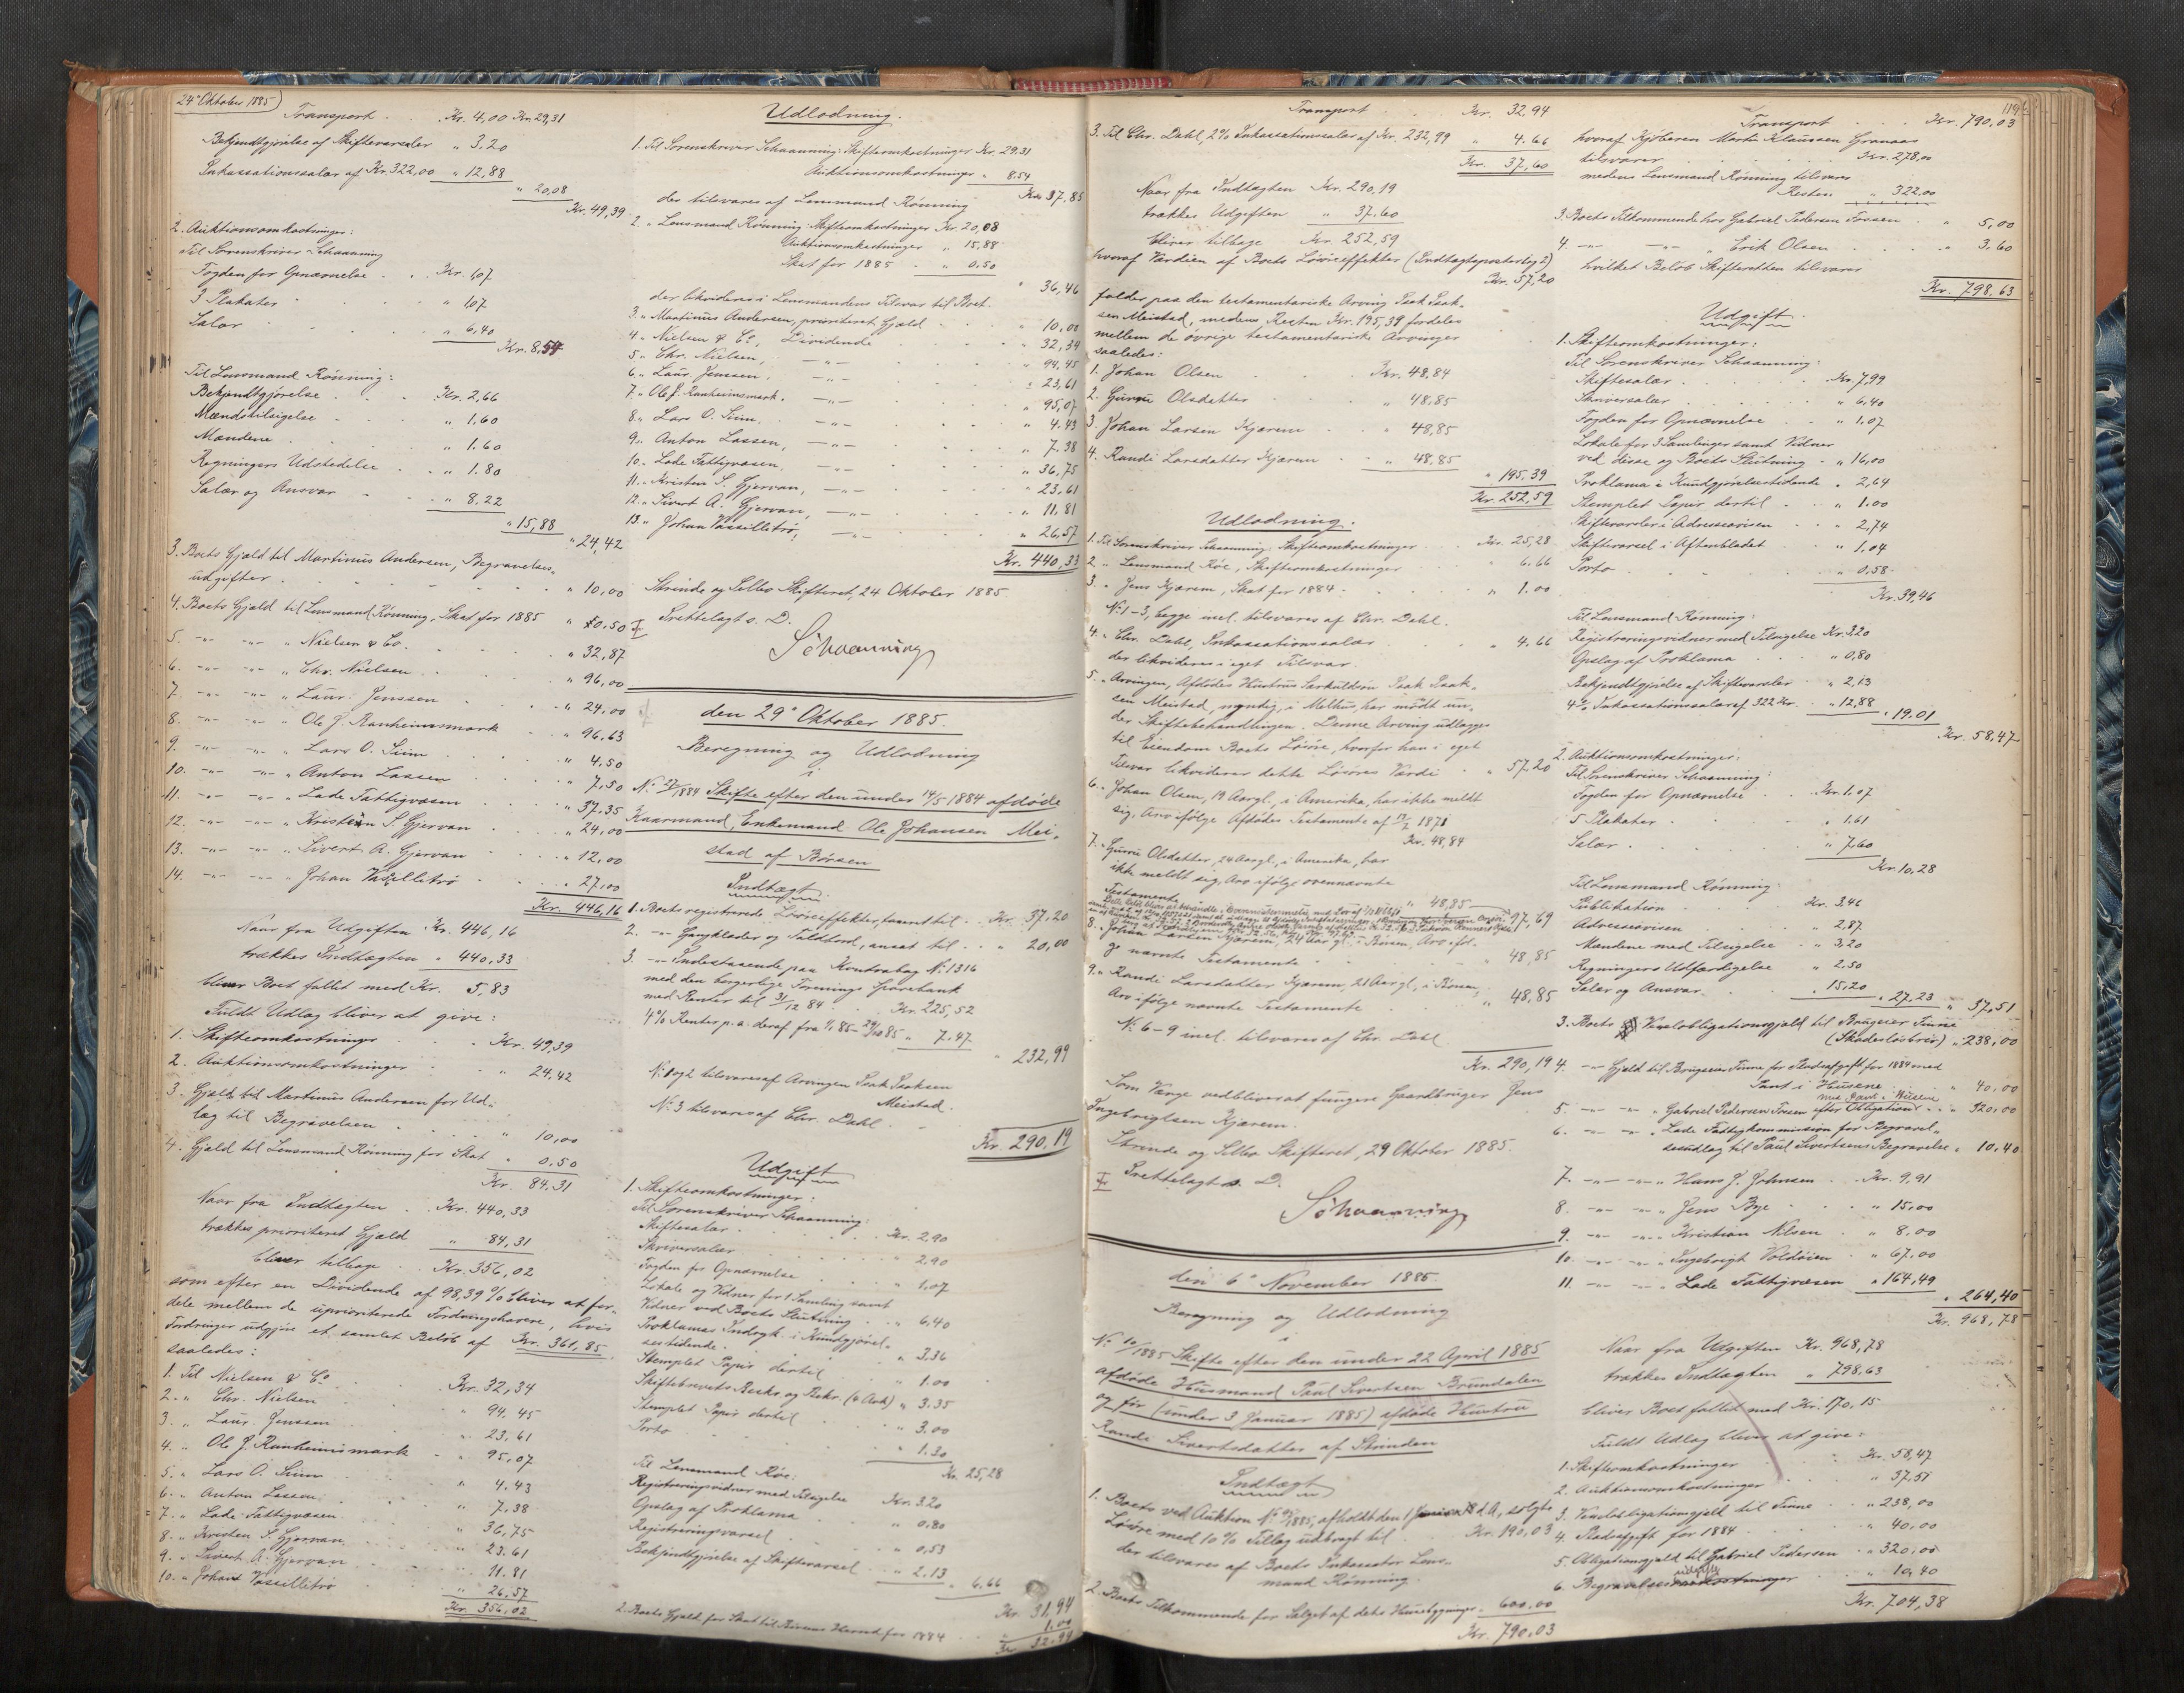 24de Oktober 1885
Transport . . Kr. 4,00 Kr. 29,31
Bekjendtgjørelse af Skiftevarsler " 3,20
Inkassationssalær af Kr. 322,00 " 12,88
" 20,08
Kr. 49,39
2. Auktionsomkostninger:
Til Sorenskriver Schaanning
Fogden for Opnævnelse . . Kr. 1,07
3 Plakater " 1,07
Salær " 6,40
Kr. 8,54
Til Lensmand Rønning:
Bekjendtgjørelse . Kr. 2,66
Mændstilsigelse " 1,60
Mændene " 1.60
Regningers Udstedelse . . " 1.80
Salær og Ansvar . . " 8,22
" 15,88
" 24,42
3. Boets Gjæld til Martinus Andersen, Begravelses-
udgifter . " 10,00
4. Boets Gjæld til Lensmand Rønning, Skat for 1885 " 0,50
5. -"- -"- " Nielsen & Co. " 32,87
6. -"- -"- " Chr. Nielsen " 96,00
7. -"- -"- " Laur. Jenssen " 24,00
8. -"- -"- " Ole J. Ranheimsmark " 96,63
9. -"- -"- " Lars O. Siim " 4,50
10. -"- -"- " Anton Lassen " 7,50
11. -"- -"- " Lade Fattigvæsen " 37,35
12. -"- -"- " Kristen S. Gjervan " 24,00
13. -"- -"- " Sivert A. Gjervan " 12,00
14. -"- -"- " Johan Vasillitrø " 27,00
Kr. 446,16
Naar fra Udgiften Kr. 446,16
trækkes Indtægten " 440,33
bliver Boet fallit med Kr. 5,83
Fuldt Udlag bliver at give:
1. Skifteomkostninger Kr. 49,39
2. Auktionsomkostninger " 24,42
3. Gjæld til Martinus Andersen for Ud-
læg til Begravelsen " 10,00
4. Gjæld til Lensmand Rønning for Skat " 0,50
Kr. 84,31
Naar fra Indtægten . Kr. 440,33
trækkes prioriteret Gjæld " 84,31
bliver tilbage . Kr. 356,02
som efter en Dividende af 98,39 % bliver at for-
dele mellem de uprioriterede Fordringshavere, hvis
Fordringer udgjøre et samlet Beløb af Kr. 361,85
saaledes:
1. Til Nielsen & Co Kr. 32,34
2. " Chr. Nielsen " 94,45
3. " Laur. Jenssen " 23,61
4. " Ole J. Ranheimsmark " 95,07
5. " Lars O. Siim " 4,43
6. " Anton Lassen " 7,38
7. " Lade Fattigvæsen " 36,75
8. " Kristen S. Gjervan " 23.61
9. " Sivert A. Gjervan " 11.81
10. " Johan Vassillitrø " 26,57
Kr. 356,02
Udlodning.
1. Til Sorenskriver Schaanning: Skifteomkostninger Kr. 29.31
Auktionsomkostninger " 8.54
Kr. 37,85
der tilsvares af Lensmand Rønning
2. " Lensmand Rønning: Skifteomkostninger Kr. 20,08
Auktionsomkostninger " 15,88
Skat for 1885 . " 0.50
" 36,46
der likvideres i Lensmandens Tilsvar til Boet.
3. " Martinus Andersen, prioriteret Gjæld " 10,00
4. " Nielsen & Co, Dividende " 32,34
5. " Chr. Nielsen, -"- " 94,45
6. " Laur. Jenssen, -"- " 23,61
7. " Ole J. Ranheimsmark, -"- " 95,07
8. " Lars O. Siim, -"- " 4.43
9. " Anton Lassen, -"- " 7.38
10. " Lade Fattigvæsen, -"- " 36,75
11. " Kristen S. Gjervan, -"- " 23,61
12. " Sivert A. Gjervan, -"- " 11.81
13. " Johan Vassillitrø, -"- " 26,57
Kr. 440,33
Strinde og Selbu Skifteret, 24 Oktober 1885
Fretlelagt s. D.
Schaanning
den 29de Oktober 1885.
Beregning og Udlodning
i
No 27/1884 Skifte efter den under 14/5 1884 afdøde
Kaarmand, Enkemand Ole Johansen Mei-
stad af Børsen
Indtægt.
1. Boets registrerede Løsøreeffekter, taxeret til . Kr. 37,20
2. -"- Gangklæder og Fældtord, ansat til . . " 20,00
3. -"- Indestaaende paa Kontrabog No 1316
med den borgerlige Forenings Sparebank
med Renter til 31/12 84 . Kr. 225,52
4% Renter p. a. deraf fra 1/1 85 - 29/10 85 " 7.47
" 232,99
No 1 og 2 tilsvares af Arvingen Isak Isaksen
Meistad.
No. 3 tilsvares af Chr. Dahl.
Kr. 290.19
Udgift
1. Skifteomkostninger:
Til Sorenskriver Schaanning:
Skiftesalær . Kr. 2,90
Skriversalær " 2,90
Fogden for Opnævnelse " 1,07
Lokale og Vidner for 1 Samling samt
Vidner ved Boets Slutning " 6,40
Proklamas Indryk. i Kundgjørel-
sestidende . " 3.36
Stemplet Papir dertil " 1.00
Skiftebrevets Beskr. og Bekr. (4 Ark) " 3.35
Stemplet Papir dertil " 3.00
Porto " 1.30
Kr. 25,28
Til Lensmand Røe:
Registreringsvidner med Tilsigelse Kr. 3.20
Opslag af Proklama " 0,80
Registreringsvarsel " 0,53
Bekjendtgjørelse af Skiftevarsel " 2.13
" 6,66
Kr. 31,94
2. Boets Gjæld for Skat til Børsens Herred for 1884 " 1.00
Kr. 32,94
119
Transport . Kr. 32.94
3. Til Chr. Dahl, 2% Inkassationssalær af Kr. 232,99 " 4.66
Kr. 37,60
Naar fra Indtægten Kr. 290,19
trækkes Udgiften " 37.60
bliver tilbage Kr. 252,59
hvoraf Værdien af Boets Løsøreeffekter (Indtægtsposterne 1 og 2)
Kr. 57,20
falder paa den testamentariske Arving Isak Isak-
sen Meistad, medens Resten Kr. 195,39 fordeles
mellem de øvrige testamentariske Arvinger
saaledes:
1. Johan Olsen Kr. 48,84
2. Gurru Olsdatter " 48,85
3. Johan Larsen Kjærem " 48,85
4. Randi Larsdatter Kjærem " 48,85
" 195.39
Kr. 252,59
Udlodning.
1. Til Sorenskriver Schaanning, Skifteomkostninger Kr. 25,28
2. " Lensmand Røe, Skifteomkostninger " 6.66
3. " Jens Kjærem, Skat for 1884 " 1.00
No 1-3, begge incl. tilsvares af Chr. Dahl.
4. " Chr. Dahl, Inkassationssalær " 4.66
der likvideres i eget Tilsvar.
5. " Arvingen, Afdødes Hustrus Særkuldsøn Isak Isak-
sen Meistad, myndig, i Melhus, har mødt un-
der Skiftebehandlingen. Denne Arving udlægges
til Eiendom Boets Løsøre, hvorfor han i eget
Tilsvar likviderer dette Løsøres Værdi " 57,20
6. " Johan Olsen, 19 Aar gl., i Amerika, har ikke meldt
sig, Arv ifølge Afdødes Testamente af 17/7 1871
Kr. 48,84
7. " Gurru Olsdatter, 24 Aar gl., i Amerika, har
ikke meldt sig, Arv ifølge ovennævnte
Testamente " 48,85
" 97,69
8. " Johan Larsen Kjærem, 24 Aar gl. i Børsen, Arv iføl-
ge nævnte Testamente " 48,85
9. " Randi Larsdatter Kjærem, 21 Aar gl., i Børsen,
Arv ifølge nævnte Testamente " 48,85
No. 6-9 incl. tilsvares af Chr. Dahl
Kr. 290,19
Som Værge vedbliver at fungere Gaardbruger Jens
Ingebrigtsen Kjærem.
Strinde og Selbu Skifteret, 29 Oktober 1885.
Fretlelagt s. D.
Schaanning
den 6de November 1885.
Beregning og Udlodning
i
No. 10/1885 Skifte efter den under 22 April 1885
afdøde Husmand Paul Sivertsen Brundalen
og før (under 3 Januar 1885) afdøde Hustru
Randi Sivertsdatter af Strinden
Indtægt
1. Boets ved Auktion No /1885, afholdt den 1 d. A., solgte
Løsøre med 10 % Tillæg udbragt til . Kr. 190,03
der tilsvares af Boets Inkassator Lens-
mand Rønning.
2. Boets Tilkommende for Salget af dets Husebygninger " 600,00
Kr. 790.03
Transport . . Kr. 790,03
hvoraf Kjøberen Martin Klaussen Granaas
tilsvarer Kr. 278,00
medens Lensmand Rønning tilsvarer
Resten " 322,00
3. Boets Tilkommende hos Gabriel Pedersen Foosen . " 5,00
4. -"- -"- " Erik Olsen " 3.60
hvilket Beløb Skifteretten tilsvarer
Kr. 798.63
Udgift.
1. Skifteomkostninger:
Til Sorenskriver Schaanning:
Skiftesalær Kr. 7,99
Skriversalær " 6,40
Fogden for Opnævnelse " 1,07
Lokale for 3 Samlinger samt Vidner
ved disse og Boets Slutning " 16,00
Proklama i Kundgjørelsestidende " 2,64
Stemplet Papir dertil " 1.00
Skiftevarsler i Adresseavisen " 2,74
Skiftevarsel i Aftenbladet " 1,04
Porto " 0,58
Kr. 39,46
Til Lensmand Rønning:
Registreringsvidner med Tilsigelse Kr. 3,20
Opslag af Proklama " 0,80
Bekjendtgjørelse af Skiftevarsler " 2,13
4% Inkassationssalær af 322 Kr. " 12,88
" 19.01
Kr. 58,47
2. Auktionsomkostninger:
Til Sorenskriver Schaanning:
Fogden for Opnævnelse Kr. 1.07
5 Plakater " 1.61
Salær " 7,60
Kr. 10,28
Til Lensmand Rønning:
Publikation Kr. 3,46
Adresseavisen " 2,87
Mændene med Tilsigelse " 3,20
Regningers Udfærdigelse " 2,50
Salær og Ansvar " 15,20
" 27,23
" 37,51
3. Boets Vexelobligationsgjæld til Brugseier Finne
(Skadesløsbrev) " 238,00
4. -"- Gjæld til Brugseier Finne for Pladsafgift for 1884 med
Pant i Husene " 40,00
5. -"- -"- " Gabriel Pedersen Foosen efter Obligation med Pant i Husene " 320,00
6. -"- -"- " Lade Fattigkommission for Begravel-
sesudlæg til Paul Sivertsens Begravelse " 10,40
7. -"- -"- " Hans J. Johnsen Kr. 9,91
8. -"- -"- " Jens Bye " 15,00
9. -"- -"- " Kristian Nilsen " 8,00
10. -"- -"- " Ingebrigt Voldsøien " 67,00
11. -"- -"- " Lade Fattigvæsen " 164,49
" 264,40
Kr. 968,78
Naar fra Udgiften Kr. 968,78
trækkes Indtægten " 798.63
bliver Boet fallit med Kr. 170,15
Fuldt Udlæg bliver at give:
1. Skifteomkostninger Kr. 58,47
2. Auktionsomkostninger " 37,51
3. Vexelobligationsgjæld til Finne " 238,00
4. Pladsafgift for 1884 " 40,00
5. Obligationsgjæld til Gabriel Pedersen " 320,00
6. Begravelsesudgifter " 10,40
Kr. 704,38